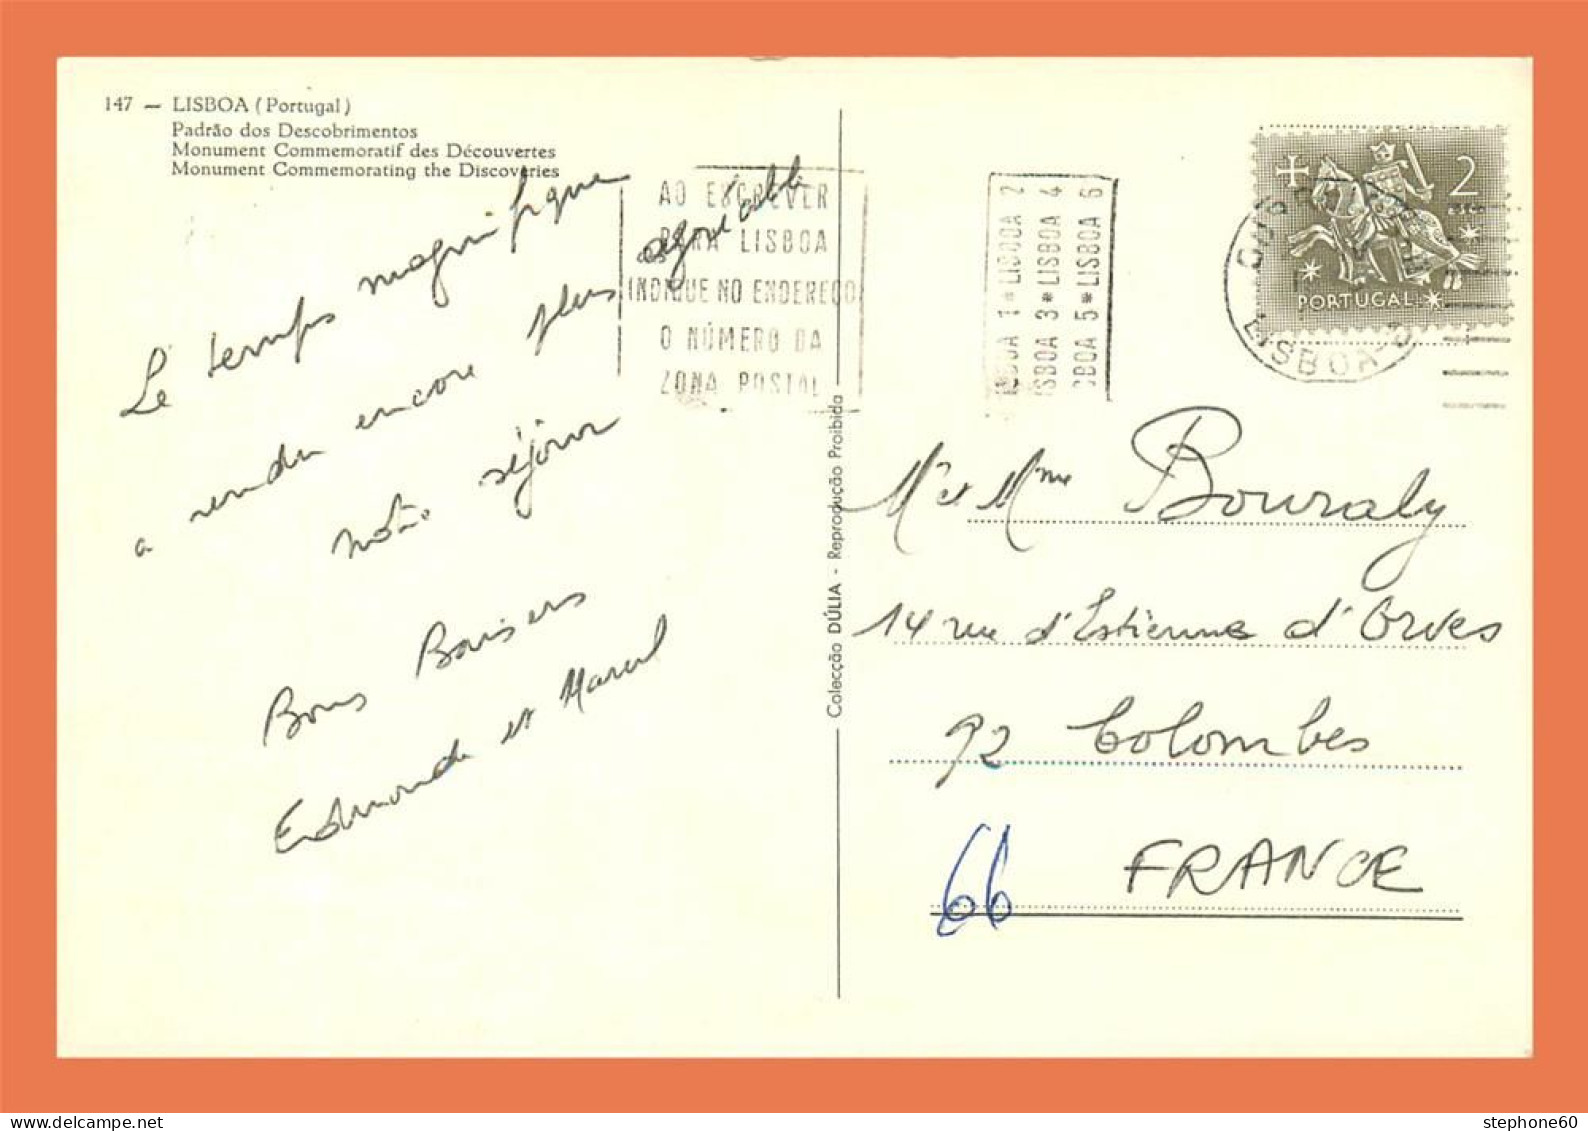 147 — LISBOA (Portugal)
Padrão dos Descobrimentos
Monument Commemoratif des Découvertes
Monument Commemorating the Discoveries
Le temps magnifique
a rendu encore plus agréable
notre séjour
Bons Baisers
Edmonde et Marcel
AO ESCREVER
PARA LISBOA
INDIQUE NO ENDEREÇO
O NÚMERO DA
ZONA POSTAL
LISBOA 1 * LISBOA 2
LISBOA 3 * LISBOA 4
LISBOA 5 * LISBOA 6
2
ESCO
PORTUGAL
LISBOA
Colecção DÚLIA - Reprodução Proibida
Mr et Mme Bouraly
14 rue d'Estienne d'Orves
92 Colombes
FRANCE
66
stephone60